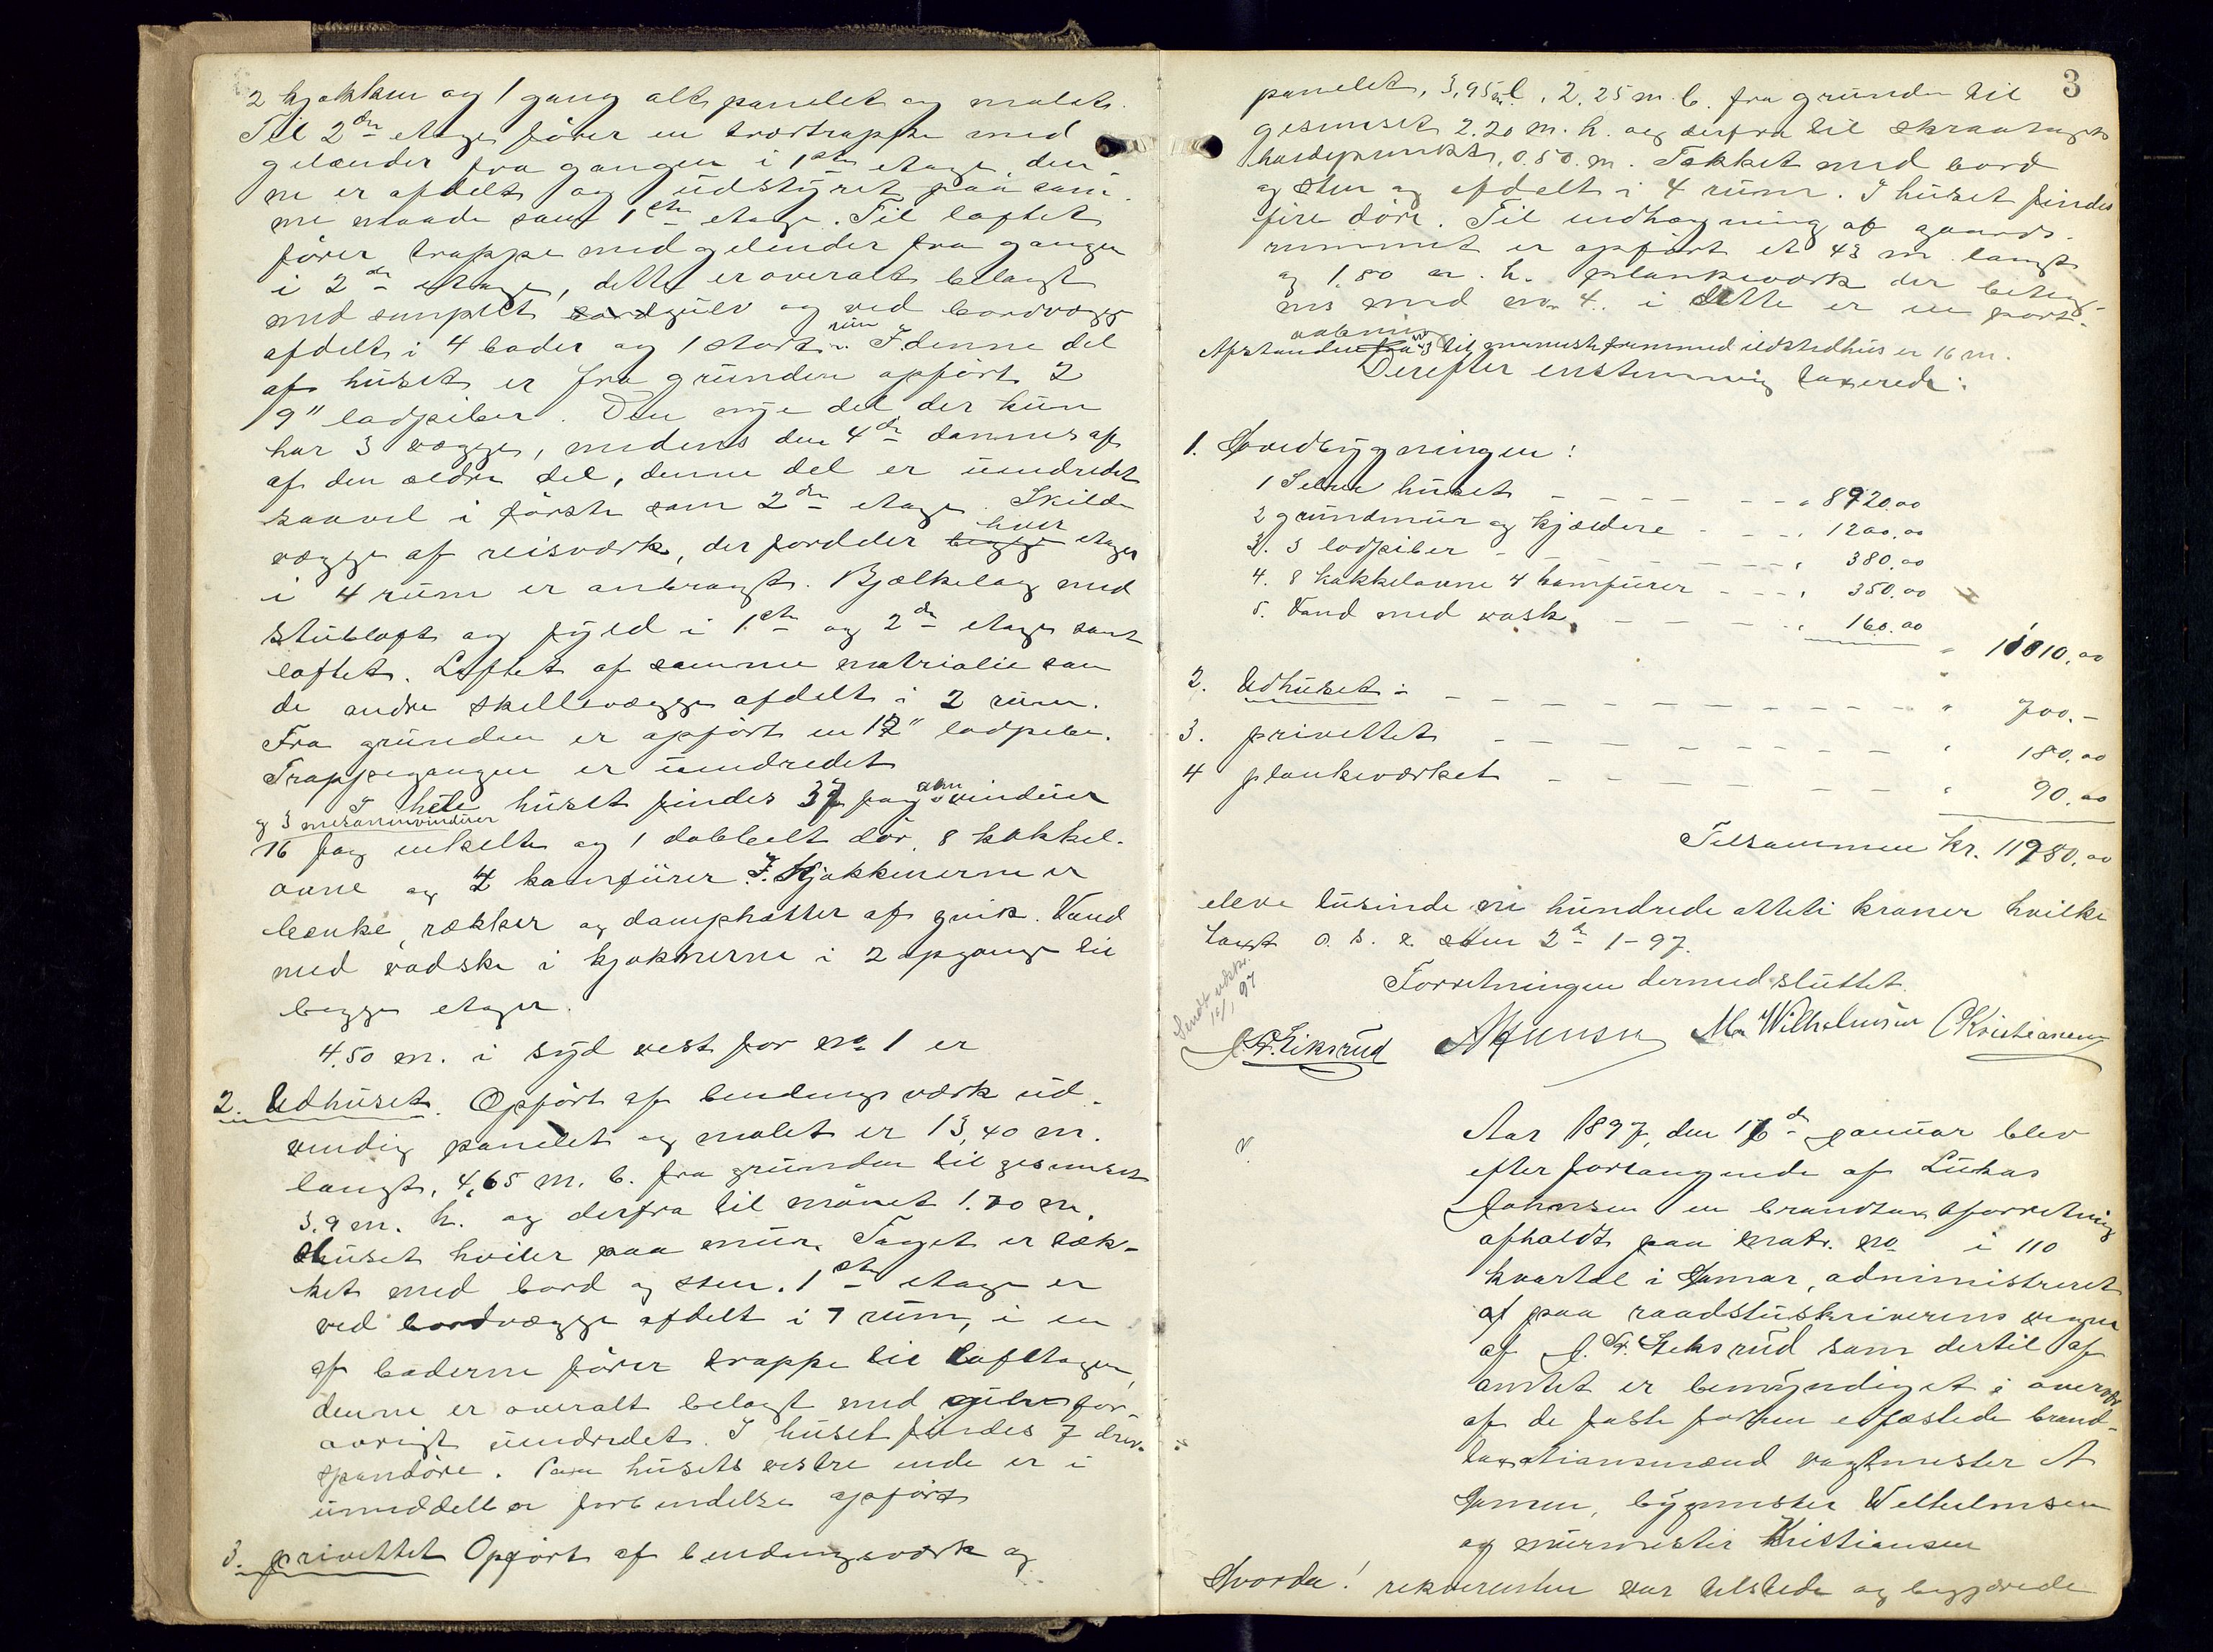 2 kjøkken og 1 gang alt panelet og malet.
Til 2den etage fører en trætrappe med
gelænder fra gangen i 1ste etage, den
ne er afdelt og udstyret paa sam-
me maade som 1ste etage. Til loftet
fører trappe med gelender fra gangen
i 2den etage, dette er overalt belagt
med simplet bordgulv og ved bordvægge
afdelt i 4 boder og 1 stort rum. I denne del
af huset er fra grunden opført 2
9" lodpiber. Den nye del der kun
har 3 vægge, medens den 4de dannes af
af den ældre del, denne del er uindredet
saavel i første som 2den etage. Skilde
vægge af reisværk, der fordeler hver etage
i 4 rum er anbragt. Bjælkelag med
stubloft og fyld i 1ste og 2den etage samt
loftet. Loftet af samme matrialie som
de andre skillevægge afdelt i 2 rum.
Fra grunden er opført en 12" lodpibe.
Trappegangen er uindredet
I hele huset findes 37 fag alm vinduer
og 3 mesaninvinduer
16 fag enkelte og 1 dobbelt dør, 8 kakkel-
ovne og 4 komfurer. I kjøkkenerne er
benke, rækker og damphatter af zink. Vand
med vadske i kjøknerne i 2 opgange til
begge etager.
4.50 m. i syd vest for no 1 er
2. Udhuset. Opført af bendings værk ud-
vendig panelet og malet er 13,40 m.
langt, 4,65 m. b. fra grunden til gesimset
3.9 m. h. og derfra til mønet 1.70 m.
Huset hviler paa mur. Taget er tæk-
ket med bord og sten. 1ste etage er
ved bordvægge afdelt i 7 rum, i en
af boderne fører trappe til loftetagen,
denne er overalt belagt med gulv for-
øvrigt uindredet. I huset findes 7
døre. Paa husets vestre ende er i
umiddelbar forbindelse opført
3. privettet Opført af bendingsværk og
3
panelet, 3,95 m l. 2.25 m. b. fra grunden til
gesimset 2.20 m. h. og derfra til skraatagets
høidepunkt 0.50 m. Tækket med bord
og sten og afdelt i 4 rum. I huset findes
fire døre. Til indhegning af gaards-
rummet er opført et 43 m. langt
og 1.80 m. h. plankeværk der beteg-
nes med no 4. i dette er en port-
aabning
Afstanden fra no 3 til nærmeste fremmed ildstedhus er 16 m.
Derefter enstemmig taxerede:
1. Hovedbygningen:
1 Selve huset - - - - - - " 8720.00
2 grundmur og kjældere - - - " 1200.00
3. 3 lodpiber - - - - - - " 380.00
4. 8 kakkelovne 4 komfurer - - - " 350.00
5. Vand med vask - - - - - " 160.00
" 10810.00
2. Udhuset: - - - - - - - - - " 700.-
3. privettet - - - - - - - - " 180.00
4 plankeværket - - - - - - - " 90.00
Tilsammen kr. 11980.00
eleve tusinde ni hundrede otteti kroner hvilke
taxt 2den 1-97.
Forretningen dermed sluttet.
Sendt
16/1 97
J. Fr. Eiksrud A Hansen M. Wilhelmsen C Kristiansen
Aar 1897, den 16de januar blev
efter forlangende af Lukas
Johnsen en brandtaxtforretning
afholdt paa matr. no i 110
kvartal i Hamar, administreret
af paa raadstuskriverens vegne
af J. Fr. Eiksrud som dertil af
amtet er bemyndiget i overvær
af de faste forhen edfæstede brand-
taxationsmænd vagtmester A
Hansen, bygmester Wilhelmsen
og murmester Kristiansen
Hvorda! rekvirenten var tilstede og begjærede